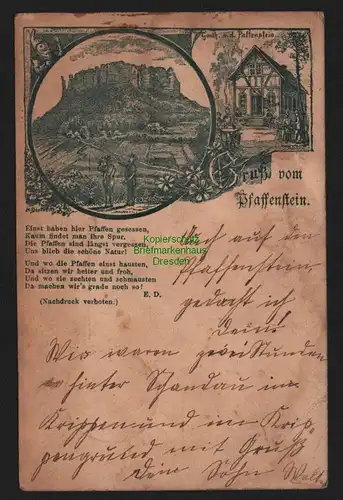 Gasth. a. d. Paffenstein.
Gruß vom
Pfaffenstein.
Einst haben hier Pfaffen gesessen,
Kaum findet man ihre Spur,
Die Pfaffen sind längst vergessen,
Uns blieb die schöne Natur!
Und wo die Pfaffen einst hausten,
Da sitzen wir heiter und froh,
Und wo sie zechten und schmausten
Da machen wir's grade noch so!
E. D.
(Nachdruck verboten.)
Kopierschutz
Briefmarkenhaus
Dresden
Hoch auf dem
Pfaffenstein
gedacht ich
Dein!
Wir waren zwei Stunden
hinter Schandau im
Krippen und im Krip-
pengrund mit Gruß
Dein Sohn Walt.